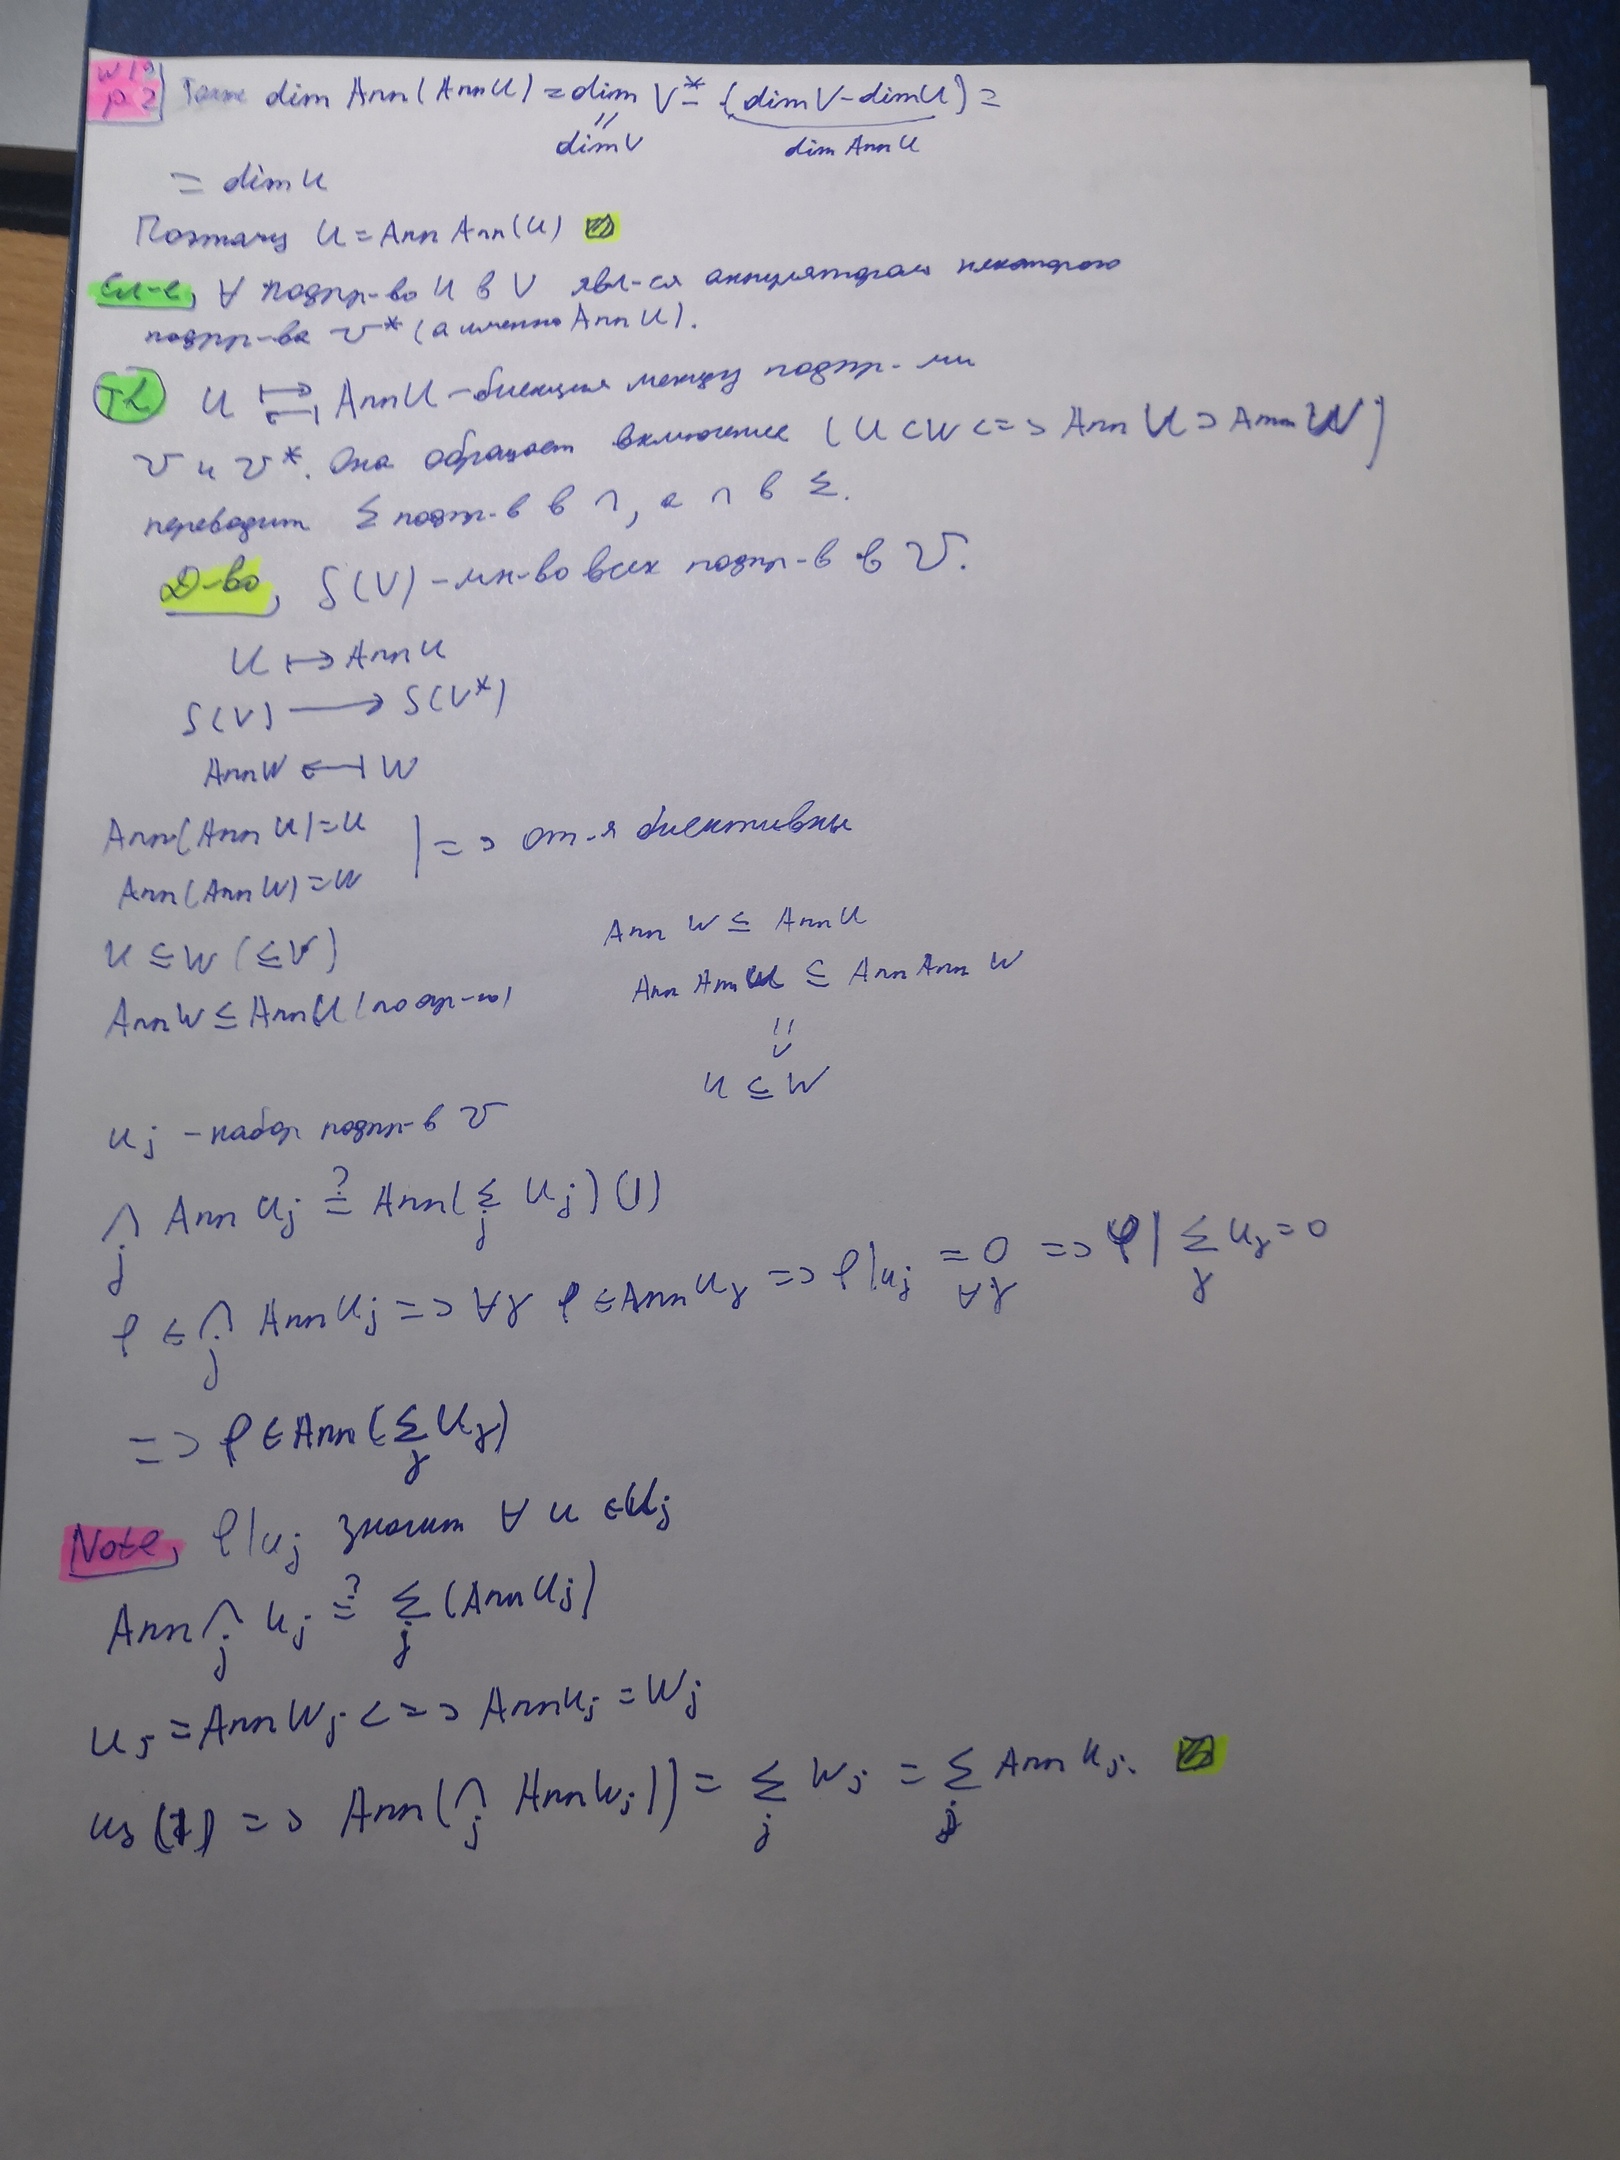 W12 p2
Также dim Ann(Ann U) = dim V* - (dim V - dim U) =
dim V dim Ann U
= dim U
Поэтому U = Ann Ann(U)
Сл-е, ∀ подпр-во U в V явл-ся аннулятором некоторого
подпр-ва V* (а именно Ann U).
U ⇄ Ann U - биекция между подпр-ми
V и V*. Она обращает включение (U ⊂ W <=> Ann U ⊃ Ann W)
переводит Σ подпр-в в ∩, а ∩ в Σ.
Д-во, S(V) - мн-во всех подпр-в в V.
U ↦ Ann U
S(V) ⟶ S(V*)
Ann W ↤ W
Ann(Ann U) = U
Ann(Ann W) = W | => от-я биективны
U ⊆ W (⊆ V)
Ann W ⊆ Ann U (по опр-ю)
Ann W ⊆ Ann U
Ann Ann U ⊆ Ann Ann W
⇓
U ⊆ W
Uj - набор подпр-в V
∩j Ann Uj ≟ Ann(Σj Uj) (1)
φ ∈ ∩j Ann Uj => ∀j φ ∈ Ann Uj => φ|Uj = 0 ∀j => φ| Σj Uj = 0
=> φ ∈ Ann(Σj Uj)
Note, φ|Uj значит ∀ u ∈ Uj
Ann ∩j Uj ≟ Σj (Ann Uj)
Uj = Ann Wj <=> Ann Uj = Wj
из (1) => Ann(∩j Ann Wj)) = Σj Wj = Σj Ann Uj.